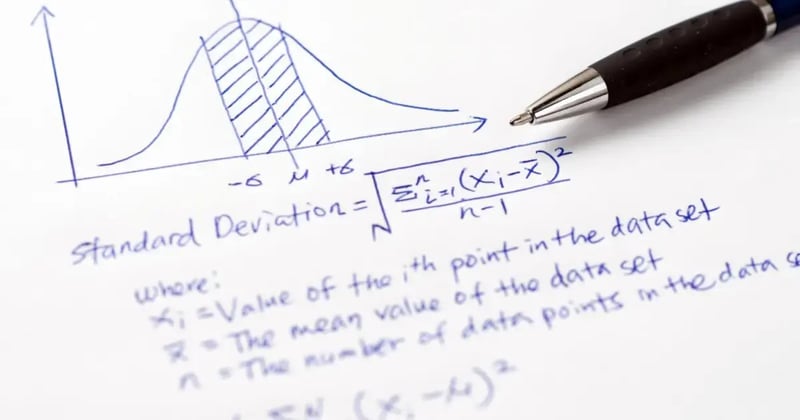 -σ μ +σ
Standard Deviation = √ Σⁿi=1 (xi - x̄)²
n-1
where:
xi = Value of the ith point in the data set
x̄ = The mean value of the data set
n = The number of data points in the data se
(xi - μ)²